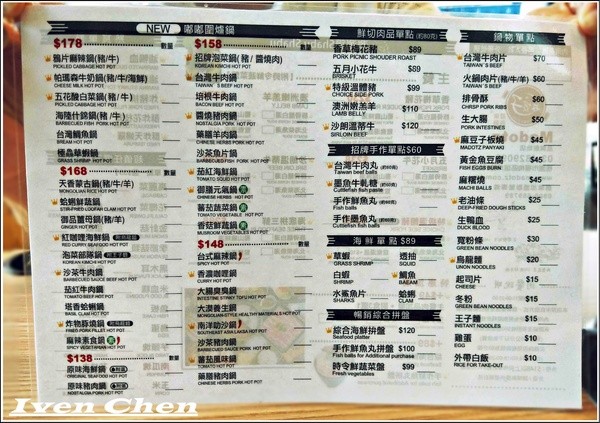 NEW 嘟嘟圍爐鍋
$178 數量
鴉片麻辣鍋(豬/牛)
PICKLED CABBAGE HOT POT
帕瑪森牛奶鍋(豬/牛/海鮮)
CHEESE MILK HOT POT
五花酸白菜鍋(豬/牛)
PICKLED CABBAGE HOT POT
海陸什錦鍋(豬/牛)
台灣鯛魚鍋
BREAM HOT POT
極蟲草蝦鍋
GRASS SHRIMP HOT POT
$168 數量
天香蒙古鍋(豬/牛/羊)
MONGOLIAN RICE HOT POT
蛤蜊鮮蔬鍋
御品薑母鍋(豬/羊)
GINGER HOT POT
紅咖哩海鮮鍋
RED CURRY SEAFOOD HOT POT
泡菜部隊鍋
KOREAN KIMCHI HOT POT
沙茶牛肉鍋
茄紅牛肉鍋
TOMATO BEEF HOT POT
塔香蛤蜊鍋
BASIL CLAM HOT POT
炸物豚燒鍋
麻辣素食鍋
SPICY VEGETARIAN HOT POT
$138
原味海鮮鍋
ORIGINAL SEAFOOD HOT POT
原味豬肉鍋
$158 數量
招牌泡菜鍋(豬/醬燒肉)
KOREAN KIMCHI HOT POT
台灣牛肉鍋
TAIWAN'S BEEF HOT POT
培根牛肉鍋
BACON BEEF HOT POT
醬燒豬肉鍋
藥膳羊肉鍋
沙茶魚片鍋
茄紅海鮮鍋
TOMATO SQUID HOT POT
御膳元氣鍋
CHINESE HERBS HOT POT
蕃茄蔬菜鍋
TOMATO VEGETABLE HOT POT
香菇鮮蔬鍋
MUSHROOM VEGETABLES HOT POT
$148 數量
台式麻辣鍋
SPICY HOT POT
香濃咖哩鍋
CURRY HOT POT
大腸臭臭鍋
大漠養生鍋
南洋叻沙鍋
沙茶豬肉鍋
蕃茄風味鍋
TOMATO HOT POT
藥膳豬肉鍋
CHINESE HERBS PORK HOT POT
鮮切肉品單點(約80克)
香草梅花豬 $89
PORK PICNIC SHOULDER ROAST
五月小花牛 $89
BRISKET
特級溫體豬 $99
CHOICE SIDE PORK
澳洲嫩羔羊 $110
LAMB BELLY
沙朗溫蒂牛 $120
SIRLOIN BEEF
招牌手作單點$60
台灣牛肉丸
Taiwan beef balls
墨魚牛軋糖
Cuttlefish fish paste
手作鮮魚丸
Fish balls
手作墨魚丸
Cuttlefish fish balls
海鮮單點 $89
草蝦 透抽
GRASS SHRIMP SQUID
白蝦 鯛魚
SHRIMP BAEAM
水鯊魚片 蛤蜊
SHARKS CLAM
暢銷綜合拼盤
綜合海鮮拼盤 $120
Seafood platter
手作鮮魚丸拼盤 $100
Fish balls for Additional purchase
時令鮮蔬菜盤 $99
Fresh vegetables
鍋物單點
台灣牛肉片 $70
TAIWAN'S BEEF
火鍋肉片(牛/羊/豬) $60
排骨酥 $60
CHRISP PORK RIBS
生大腸 $50
PORK INTESTINES
麻豆子板螥 $45
MADOTZ PANYAKI
黃金魚豆腐 $45
FISH EGGS BURN
麻糬燒 $45
MACHI BALLS
老油條 $25
DEEP-FRIED DOUGH STICKS
生鴨血 $25
DUCK BLOOD
寬粉條 $30
GREEN BEAN NOODLES
烏龍麵 $20
UDON NOODLES
起司片 $15
CHEESE
冬粉 $15
GREEN BEAN NOODLES
王子麵 $15
INSTANT NOODLES
雞蛋 $10
EGG
外帶白飯 $10
RICE FOR TAKE-OUT
Iven Chen